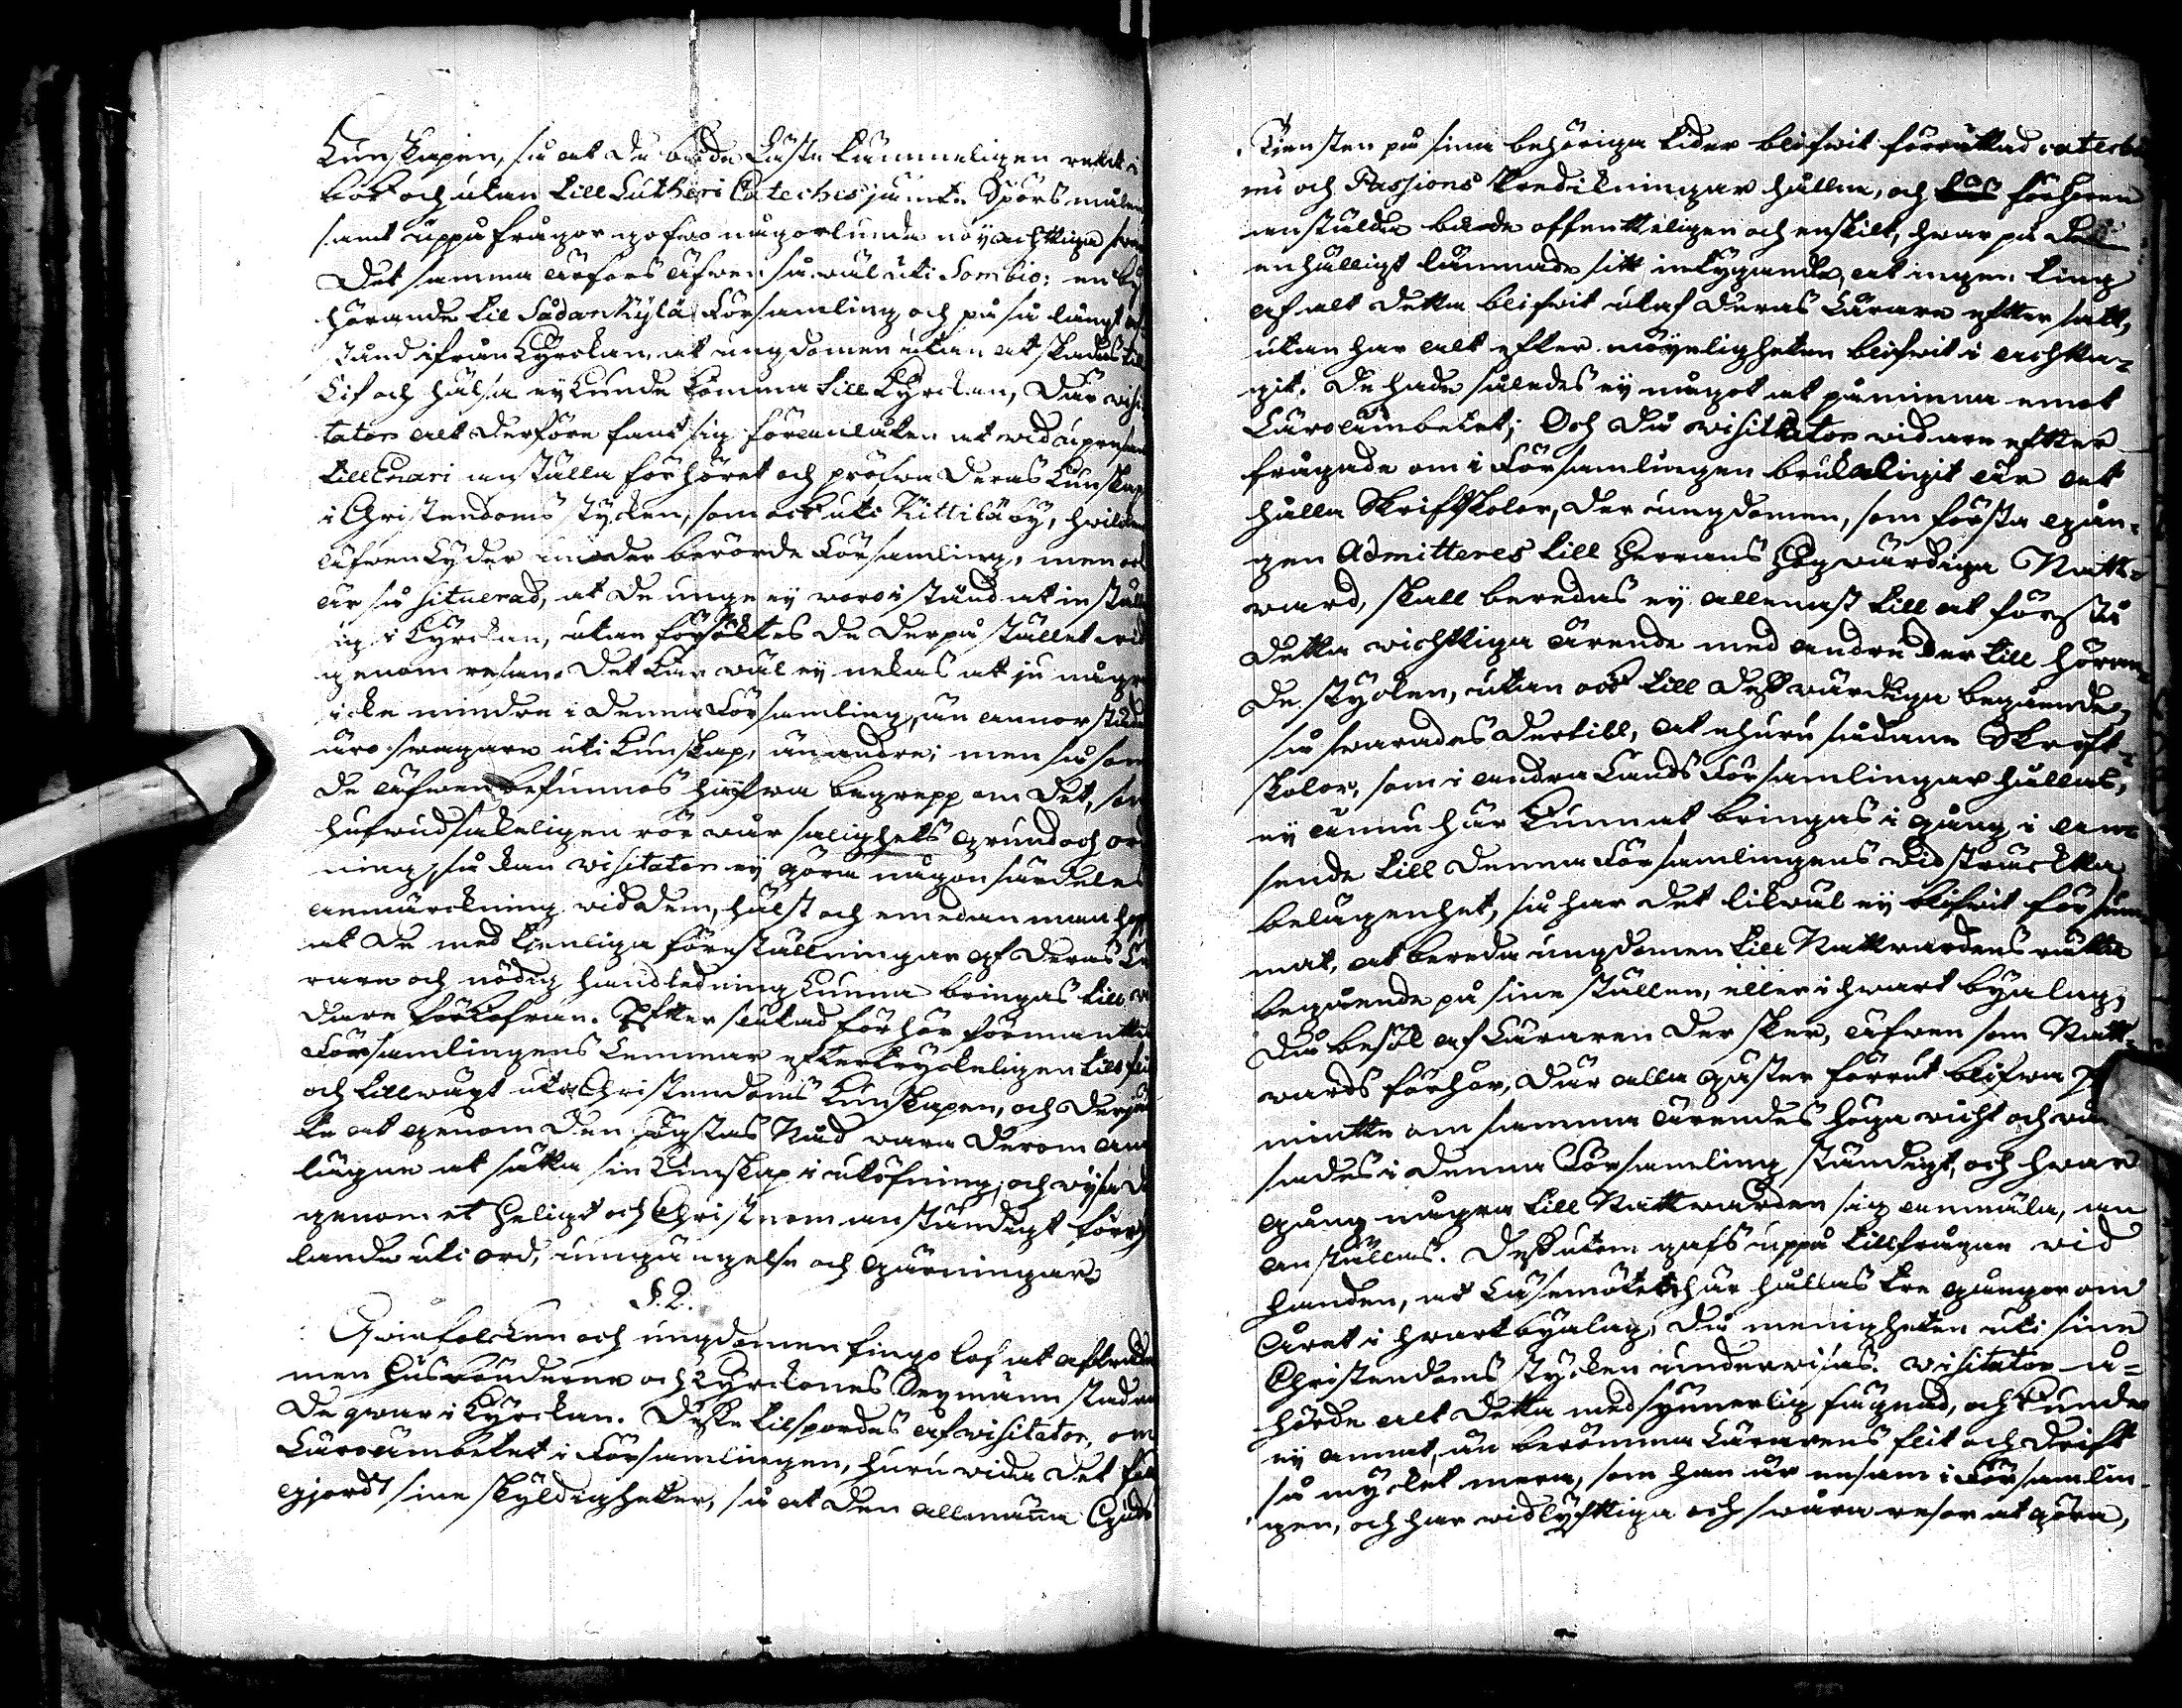 Kunskapen, så at de både läste tämmeligen rent i
bok och utan till Lutheri Catechis jämte Spörsmålen
samt uppå frågor gofwo någorlunda nöyachtiga swar
Det samma ärfors äfwen så wäl uti Sombio: en by
hörande til Sådankylä Församling och på så långt af-
stånd ifrån Kyrckan, at ungdomen utan at skadas till
Lif och hälsa ey kunde komma till Kyrckan, där visi-
tator alt derföre fant sig föranlåten at wid upresan
till Enari anställa förhöret och pröfwa deras Kunskap
i Christendoms stycken, som ock uti Kittilä by, hwilken
äfwen lyder under berörde Församling, men ock
är så situerad, at de unge ey woro i stånd at inställa
sig i Kyrckan, utan försöktes de der på stället wid
genom resan. Det kan wäl ey nekas at ju några
icke mindre i denna Församling, än annor städes
äro swagare uti Kunskap, än andre; men så som
de äfwen befunnos hafwa begrepp om det, som
hufwudsakeligen rör wår salighets grund och ord-
ning, så kan visitator ey göra någon särdeles
anmärckning wid dem, hälst och emedan man hop
at de med tjenliga föreställningar af deras Lä
rare och nödig handledning kunna bringas till wi
dare förkofran. Efter slutad förhör förmantes
Församlingens Lemmar eftertryckeligen till flit
och tillwäxt uti Christendoms Kunskapen, och derjäm
te at genom den högstas Nåd wara derom an
lägne at sätta sin Kunskap i utöfning, och wysa de
genom et heligt och Christnom anständigt förhål
lande uti ord, umgängelse och gärningar.
§. 2.
Qwinfolcken och ungdomen fingo lof at afträda
men Husbönderne och Kyrckones Sexmänn stadna
de qwar i Kyrckan. Desse tilspordes af visitator, om
Läro ämbetet i Församlingen, huru wida det
gjordt sine skyldigheter, så at den allmänna Guds
Tjensten på sina behöriga tider blifwit förrättad
och Passions Predikningar hållne, och förhören
anstälda både offenteligen och enskilt, hwar på
enhälligt lämnade sitt intygande, at ingen ting
af alt detta blifwit utaf deras Lärare efter satt,
utan har alt efter möyeligheten blifwit i achtta-
git. De hade således ey något at påminna emot
Läroämbetet; Och då visitator widare efter
frågade om i Församlingen brukeligit är at
hålla Skriftskolor, der ungdomen, som första gån-
gen Admitteres till Herrans Högwärdiga Natt-
ward, skall beredas ey allenast till at förstå
detta wichttiga ärende med andre der till höran-
de stycken, utan ock till dess wärdiga begående,
så swarades dertill, at ehuru sådane Skrift-
skolor, som i andra Lands Församlingar hållas,
ey ännu här kunnat bringas i gång i an-
sende till denna Församlingens widsträckta
belägenhet, så har det likwäl ey blifwit försum-
mat, at bereda ungdomen till Nattwardens rätta
begående på sine ställen, eller i hwart byalag,
då besök af Läraren der sker, äfwen som Natt-
wards förhör, där alla gäster förrut blifwa
mintte om samma ärendes höga wicht och
sades i denna Församling ständigt, och hwar
gång några till Nattwarden sig anmäla, an
anställas. Dessutom gafs uppå tillfrågan wid
handen, at Läsemötet här hållas tre gånger om
Året i hwart byalag, då menigheten uti sine
Christendoms stycken underwisas. Visitator å-
hörde alt detta med synnerlig fägnad, och kunde
ey annat, än berömma Lärarens flit och drift
så mycket mera, som han är ensam i Församlin-
gen, och har widlyftiga och swåra resor at göra,